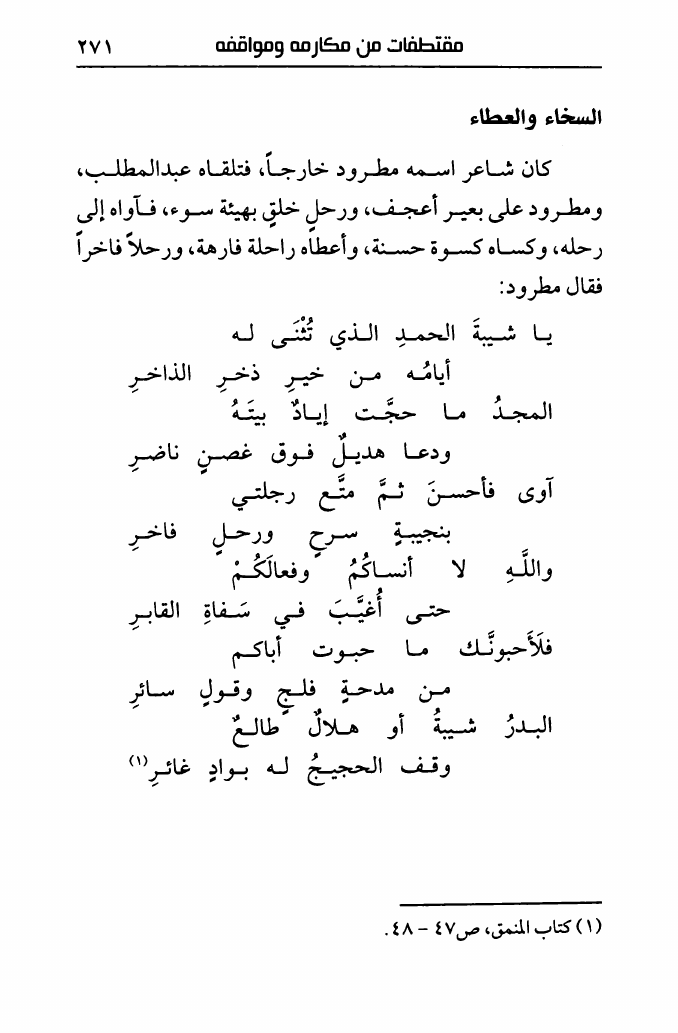 مقتطفات من مكارمه ومواقفه ٢٧١
السخاء والعطاء
كان شاعر اسمه مطرود خارجاً، فتلقاه عبدالمطلب،
ومطرود على بعير أعجف، ورحلٍ خلقٍ بهيئة سوء، فآواه إلى
رحله، وكساه كسوة حسنة، وأعطاه راحلة فارهة، ورحلاً فاخراً
فقال مطرود:
يا شيبةَ الحمدِ الذي تُثْنَى له
أيامُه من خيرِ ذخرِ الذاخرِ
المجدُ ما حجَّت إيادٌ بيتَهُ
ودعا هديلٌ فوق غصنٍ ناضرِ
آوى فأحسنَ ثمَّ متَّع رجلتي
بنجيبةٍ سرحٍ ورحلٍ فاخرِ
واللَّهِ لا أنساكُمُ وفعالَكُمْ
حتى أُغيَّبَ في سَفاةِ القابرِ
فلَأَحبونَّك ما حبوت أباكم
من مدحةٍ فلجٍ وقولٍ سائرِ
البدرُ شيبةُ أو هلالٌ طالعٌ
وقف الحجيجُ له بوادٍ غائرِ(١)
(١) كتاب المنمق، ص٤٧ – ٤٨.